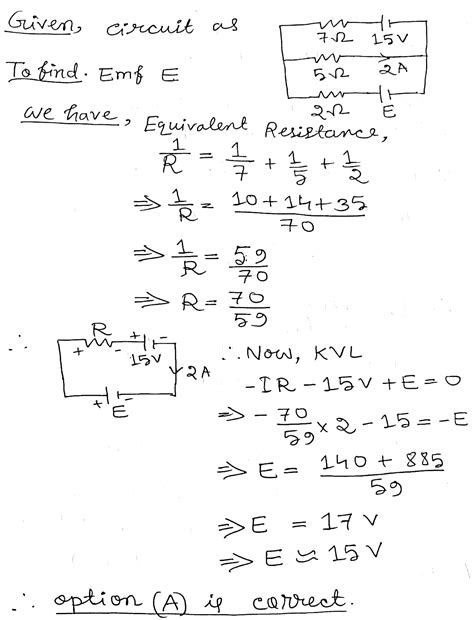 Given, circuit as
7Ω 15V
5Ω 2A
2Ω E
To find. Emf E
We have, Equivalent Resistance,
1/R = 1/7 + 1/5 + 1/2
⇒ 1/R = (10+14+35)/70
⇒ 1/R = 59/70
⇒ R = 70/59
∴ R + - + - 15V 2A + E -
∴ Now, KVL
-IR - 15V + E = 0
⇒ - 70/59 × 2 - 15 = -E
⇒ E = (140 + 885)/59
⇒ E = 17 V
⇒ E ≃ 15 V
∴ option (A) is correct.